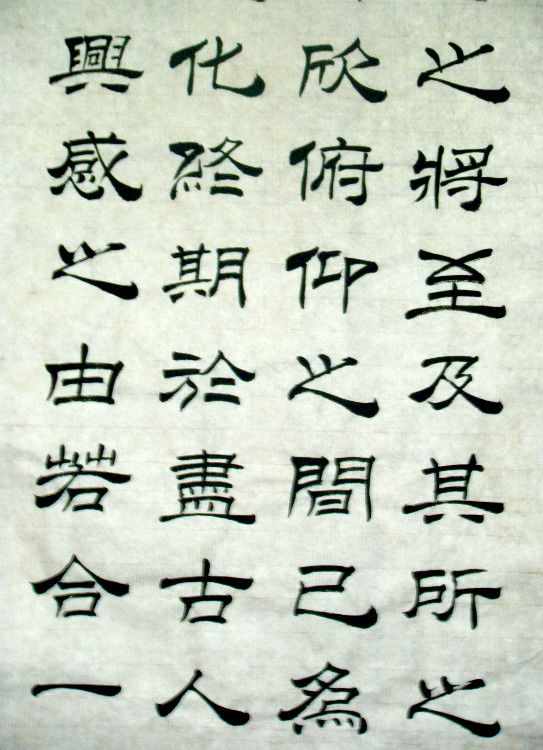 之將至及其所之
欣俯仰之間已為
化終期於盡古人
興感之由若合一